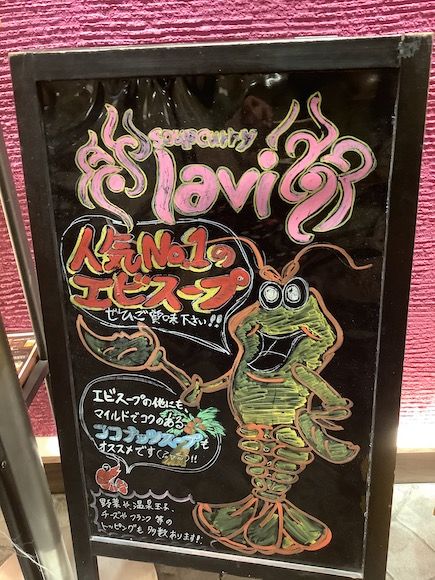 soupcurry
lavi
人気No.1の
エビスープ
ぜひご賞味下さい!!
エビスープの他にも、
マイルドでコクのある
ココナッツスープも
オススメです!!
野菜や温泉玉子、
チーズやフランク等の
トッピングも多数あります!!